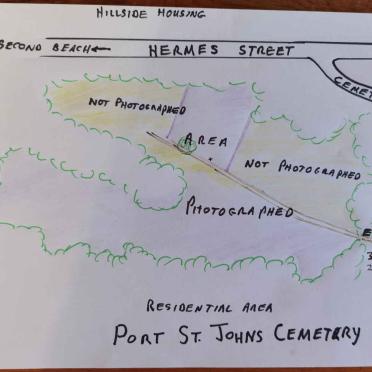 HILLSIDE HOUSING
SECOND BEACH←
HERMES STREET
CEMET
NOT PHOTOGRAPHED
AREA
NOT PHOTOGRAPHED
PHOTOGRAPHED
E
3
2
RESIDENTIAL AREA
PORT ST. JOHNS CEMETERY